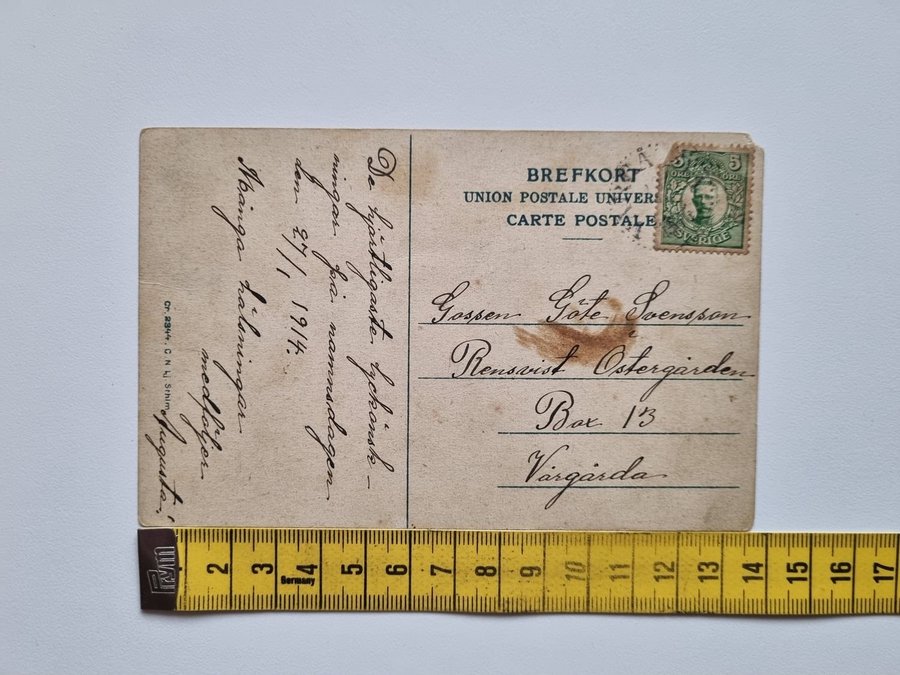 BREFKORT
UNION POSTALE UNIVERS
CARTE POSTALE
5 5
ÖRE ÖRE
SVERIGE
Gossen Göte Svensson
Rensvist Östergården
Box 13
Vårgårda
De hjärtligaste lyckönsk-
ningar på namnsdagen
den 27/1 1914.
Många hälsningar
medföljer
Augusta.
Cr. 2344. C. N:s Lj Sthlm
2 3 4 5 6 7 8 9 10 11 12 13 14 15 16 17
Germany